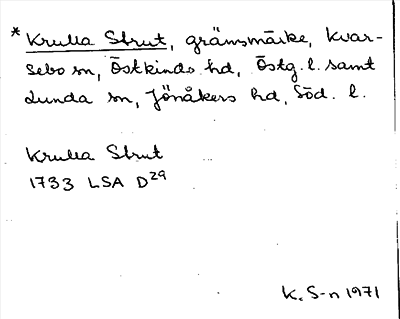 * Krulla Strut, gränsmärke, Kvar-
sebo sn, Östkinds hd, Östg. l. samt
Lunda sn, Jönåkers hd, Söd. l.
Krulla Strut
1733 LSA D29
K. S-n 1971